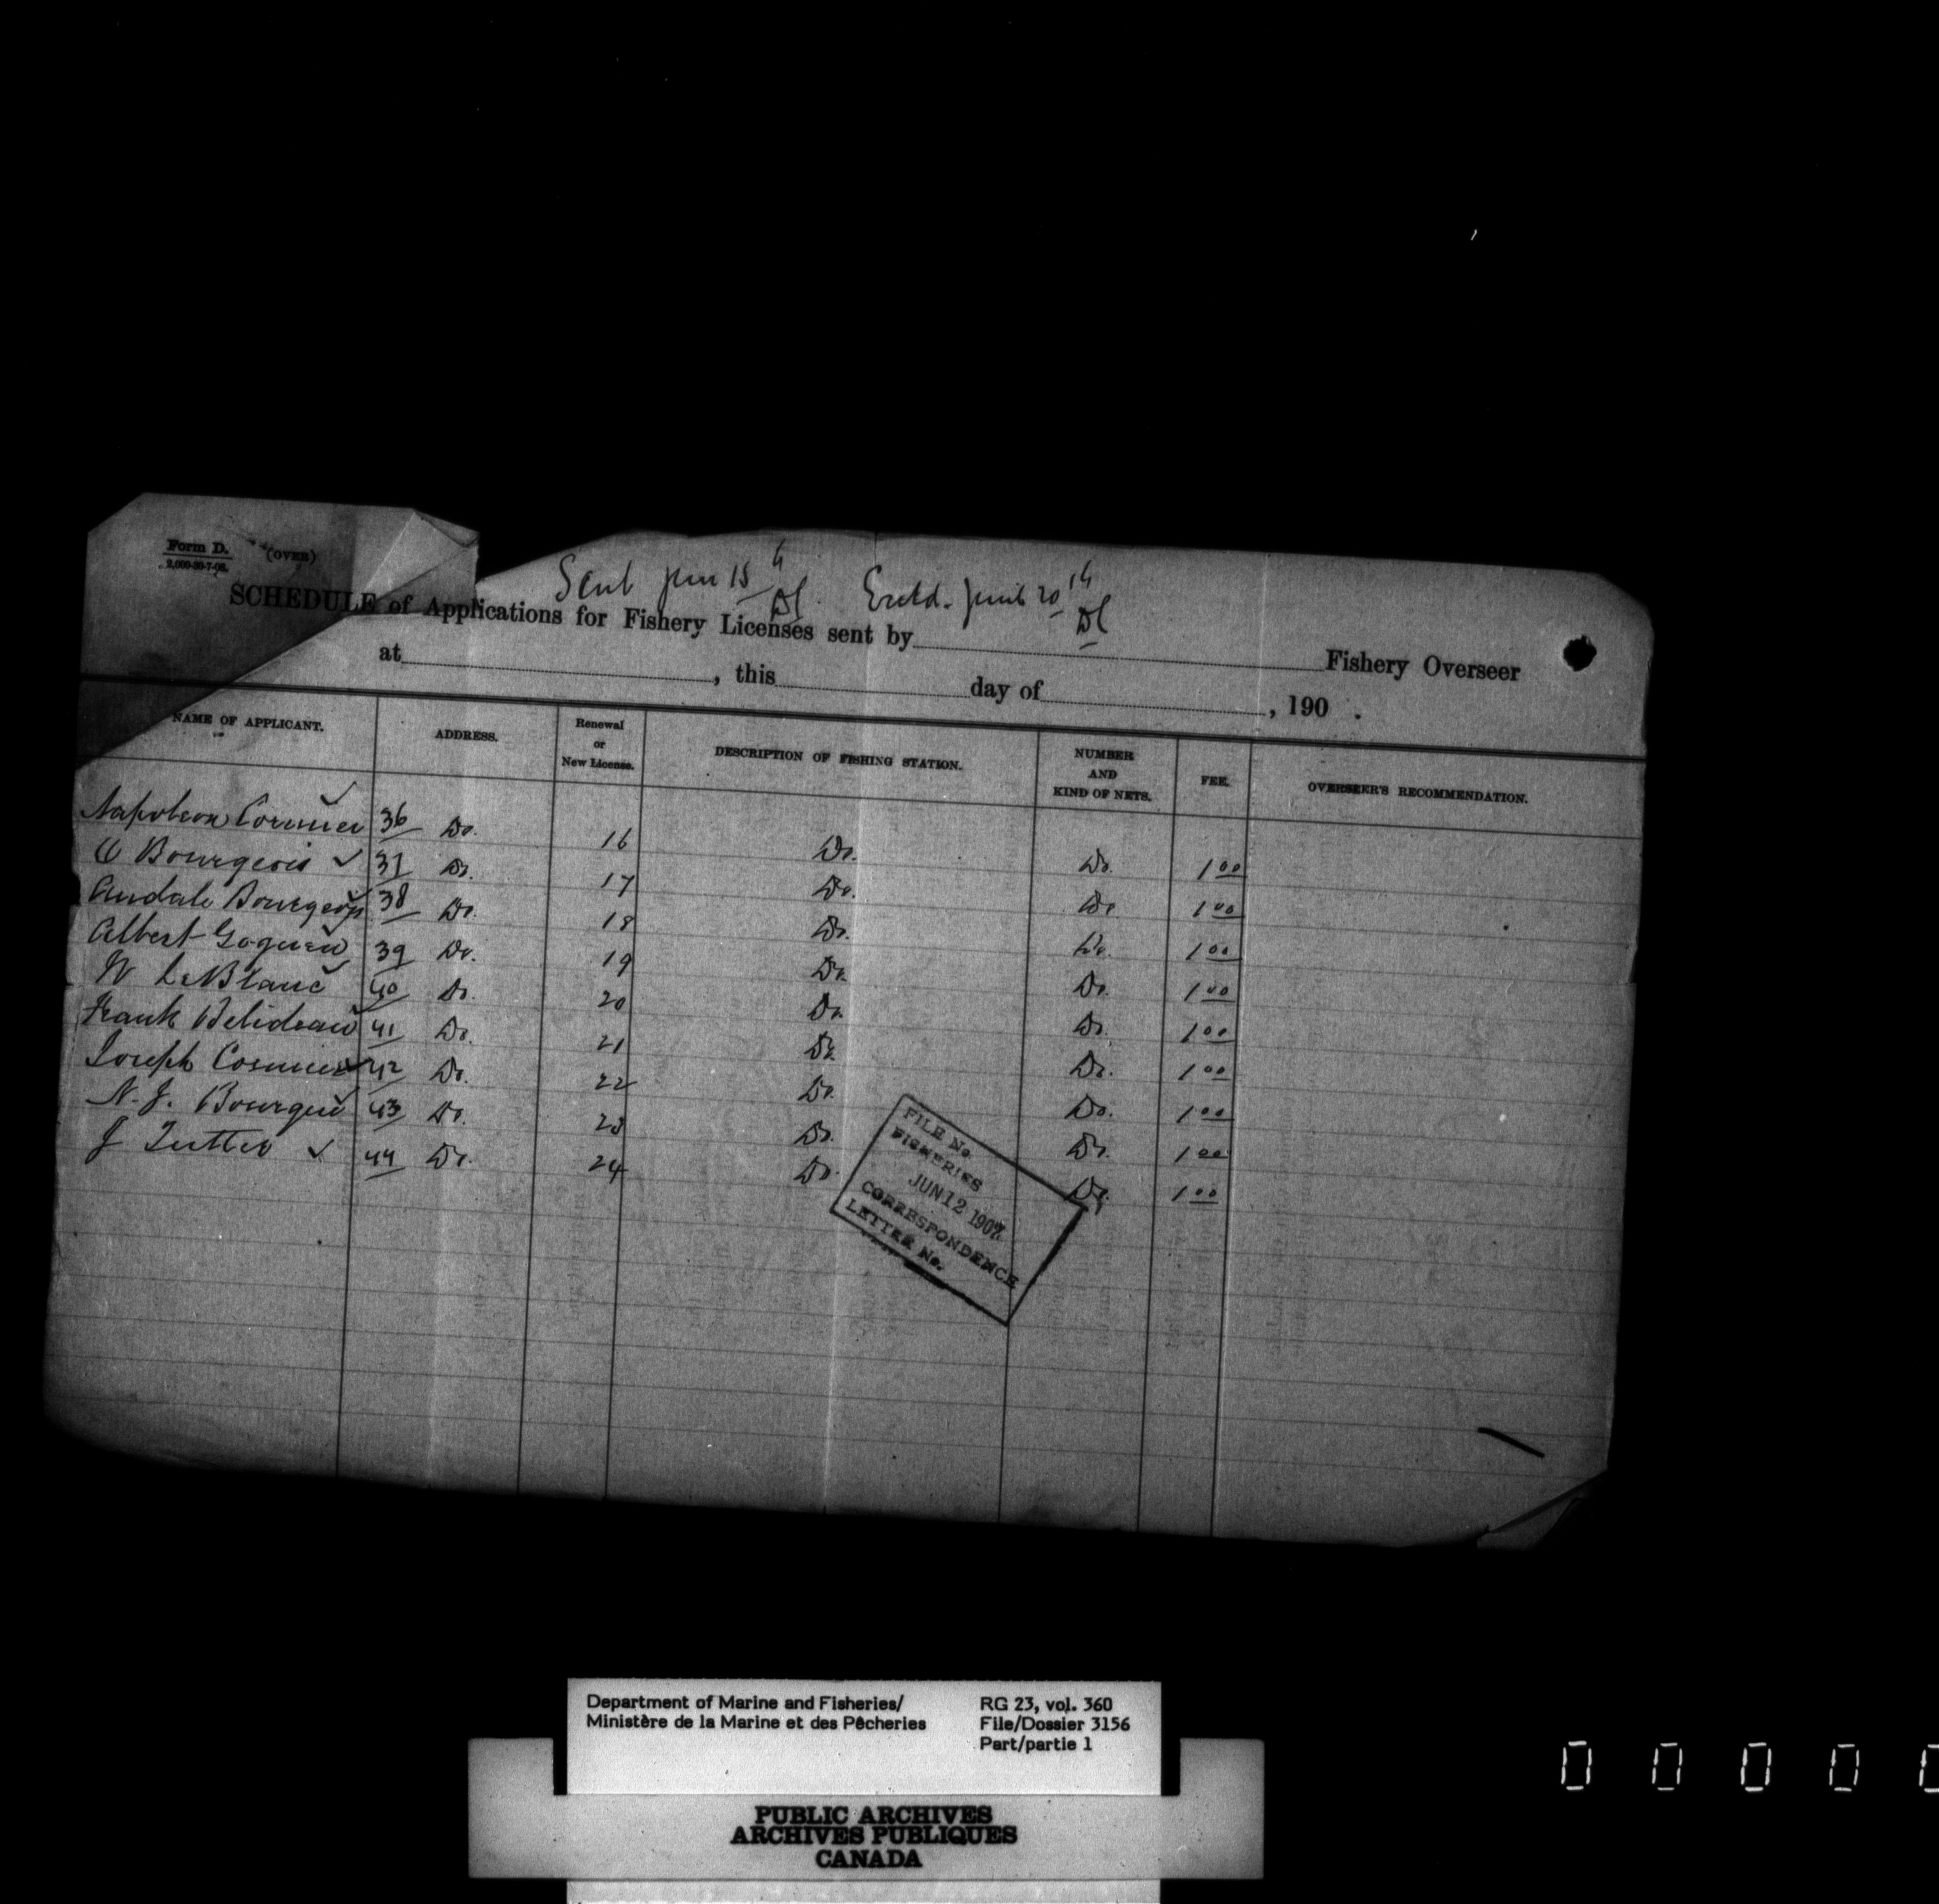 Form D. (OVER)
2,000-30-7-06.
Sent June 15th Dl. Entd. June 20th Dl
SCHEDULE of Applications for Fishery Licenses sent by Fishery Overseer
at , this day of , 190 .
NAME OF APPLICANT. ADDRESS. Renewal or New License. DESCRIPTION OF FISHING STATION. NUMBER AND KIND OF NETS. FEE. OVERSEER'S RECOMMENDATION.
Napoleon Cormier ✓ 36 Do. 16 Do. Do. 1 00
O Bourgeois ✓ 37 Do. 17 Do. Do 1 00
Bourgeois ✓ 38 Do. 18 Do. Do. 1 00
Albert Goguen ✓ 39 Do. 19 Do. Do. 1 00
W LeBlanc ✓ 40 Do. 20 Do. Do. 1 00
Frank Belideau ✓ 41 Do. 21 Do. Do. 1 00
Joseph Cormier ✓ 42 Do. 22 Do. Do. 1 00
N. J. Bourque ✓ 43 Do. 23 Do. Do. 1 00
J ✓ 44 Do. 24 Do. Do. 1 00
FILE No.
FISHERIES
JUN 12 1907
CORRESPONDENCE
LETTER No.
Department of Marine and Fisheries/
Ministère de la Marine et des Pêcheries
RG 23, vol. 360
File/Dossier 3156
Part/partie 1
PUBLIC ARCHIVES
ARCHIVES PUBLIQUES
CANADA
0 0 0 0